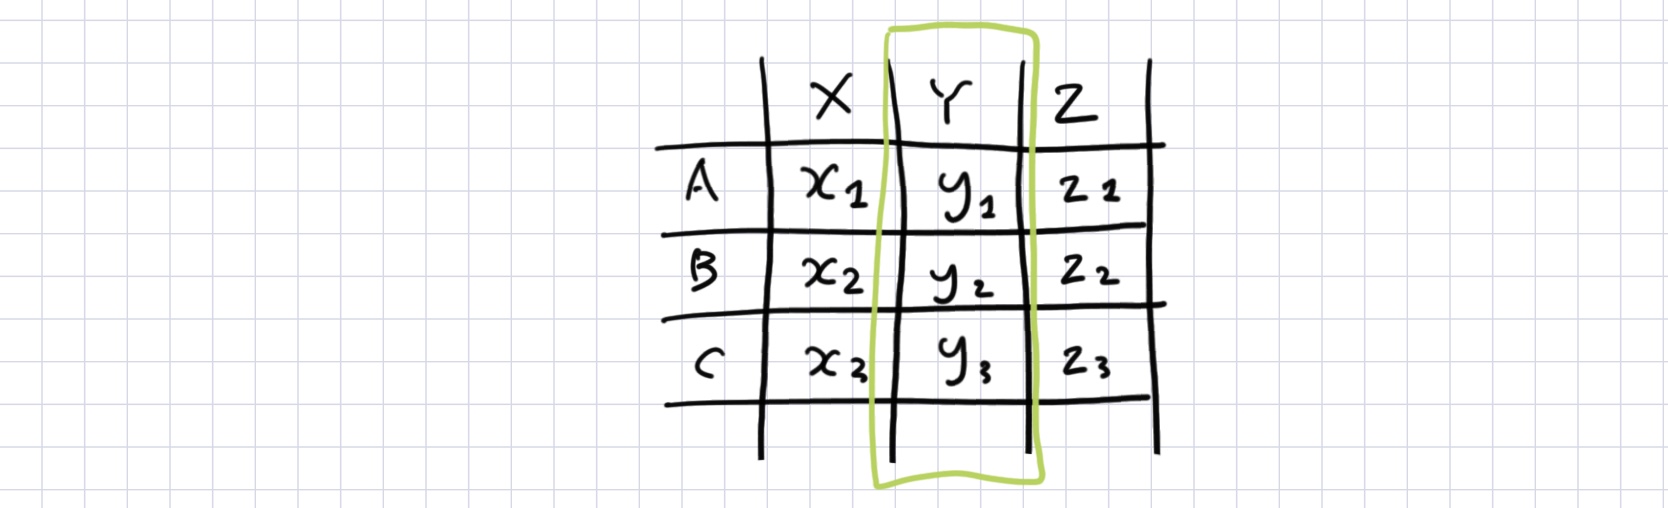 X Y Z
A x1 y1 z1
B x2 y2 z2
C x3 y3 z3